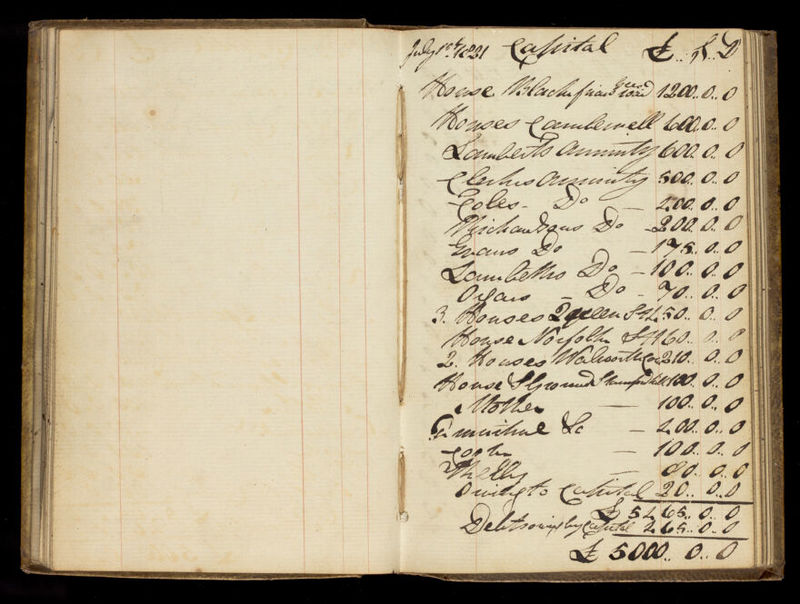 July 1st 1831 Capital £.. S.. D
House Blackfriars Road 1200.. 0.. 0
Houses Camberwell 600.. 0.. 0
Lamberts Annuity 600.. 0.. 0
Annuity 500.. 0.. 0
Coles - Do — 200.. 0.. 0
Richardsons Do - 200.. 0.. 0
Evans Do — 175.. 0.. 0
Lambeths Do - 100.. 0.. 0
Do - 70.. 0.. 0
3. Houses Queen St 50.. 0.. 0
House Norfolk St 160.. 0.. 0
2. Houses Walworth 210.. 0.. 0
House & Ground 100.. 0.. 0
Mother — 100.. 0.. 0
— 200.. 0.. 0
— 100.. 0.. 0
— 80.. 0.. 0
Owing to Capital 20.. 0.. 0
£ 5265.. 0.. 0
Debts owing by Capital 265.. 0.. 0
£ 5000.. 0.. 0